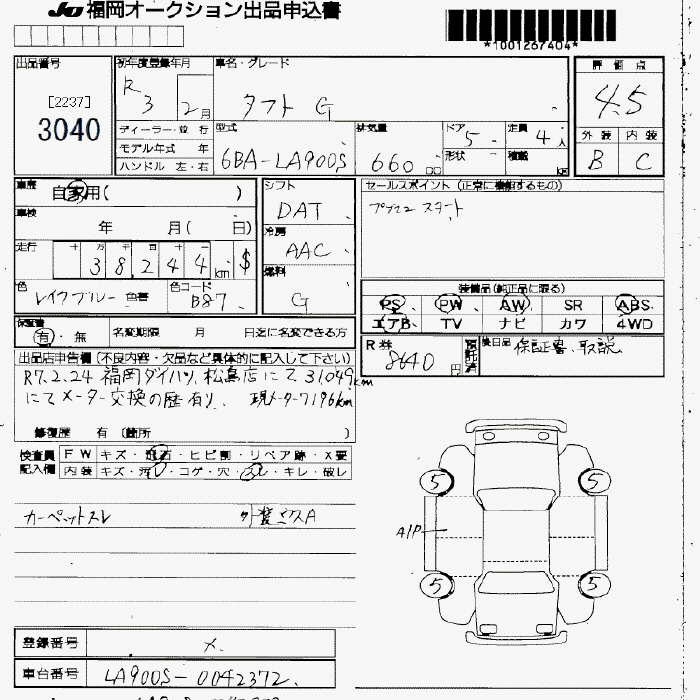 JU 福岡オークション出品申込書
*1001267404*
出品番号
[2237]
3040
初年度登録年月
R 3 2月
車名・グレード
タフト G
評価点
4.5
外装 内装
B C
ディーラー・並行
モデル年式 年
ハンドル 左・右
型式
6BA-LA900S
排気量
660 cc
ドア 5
形状
定員 4人
積載 kg
車歴
自家用( )
車検
年 月( 日)
走行
十 万 千 百 十 一
38,244 km $
色
レイクブルー 色替
色コード
B87
シフト
DAT
冷房
AAC
燃料
G
セールスポイント (正常に機能するもの)
プッシュ スタート
装備品(純正品に限る)
PS PW AW SR ABS
エアB TV ナビ カワ 4WD
保証書
有・無
名変期限 月 日迄に名変できる方
R券
8640円
預託済
後日品
保証書、取説
出品店申告欄 (不良内容・欠品など具体的に記入して下さい)
R7.2.24 福岡ダイハツ 松島店にて 31049km
にてメーター交換の歴有り、 現メーター7196km
修復歴 有 (箇所 )
検査員
記入欄
FW キズ・飛石・ヒビ割・リペア跡・X要
内装 キズ・汚レ・コゲ・穴・スレ・キレ・破レ
カーペットスレ
A1P
5 5
5 5
登録番号 ×
車台番号 LA900S-0042372